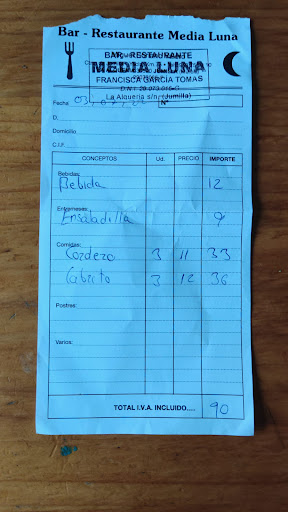 Bar - Restaurante Media Luna
BAR - RESTAURANTE
MEDIA LUNA
FRANCISCA GARCÍA TOMAS
La Alquería s/n. (Jumilla)
Fecha Nº
D.
Domicilio
C.I.F.
CONCEPTOS Ud. PRECIO IMPORTE
Bebidas:
Bebida 12
Entremeses:
Ensaladilla 9
Comidas:
Cordero 3 11 33
Cabrito 3 12 36
Postres:
Varios:
TOTAL I.V.A. INCLUIDO.... 90